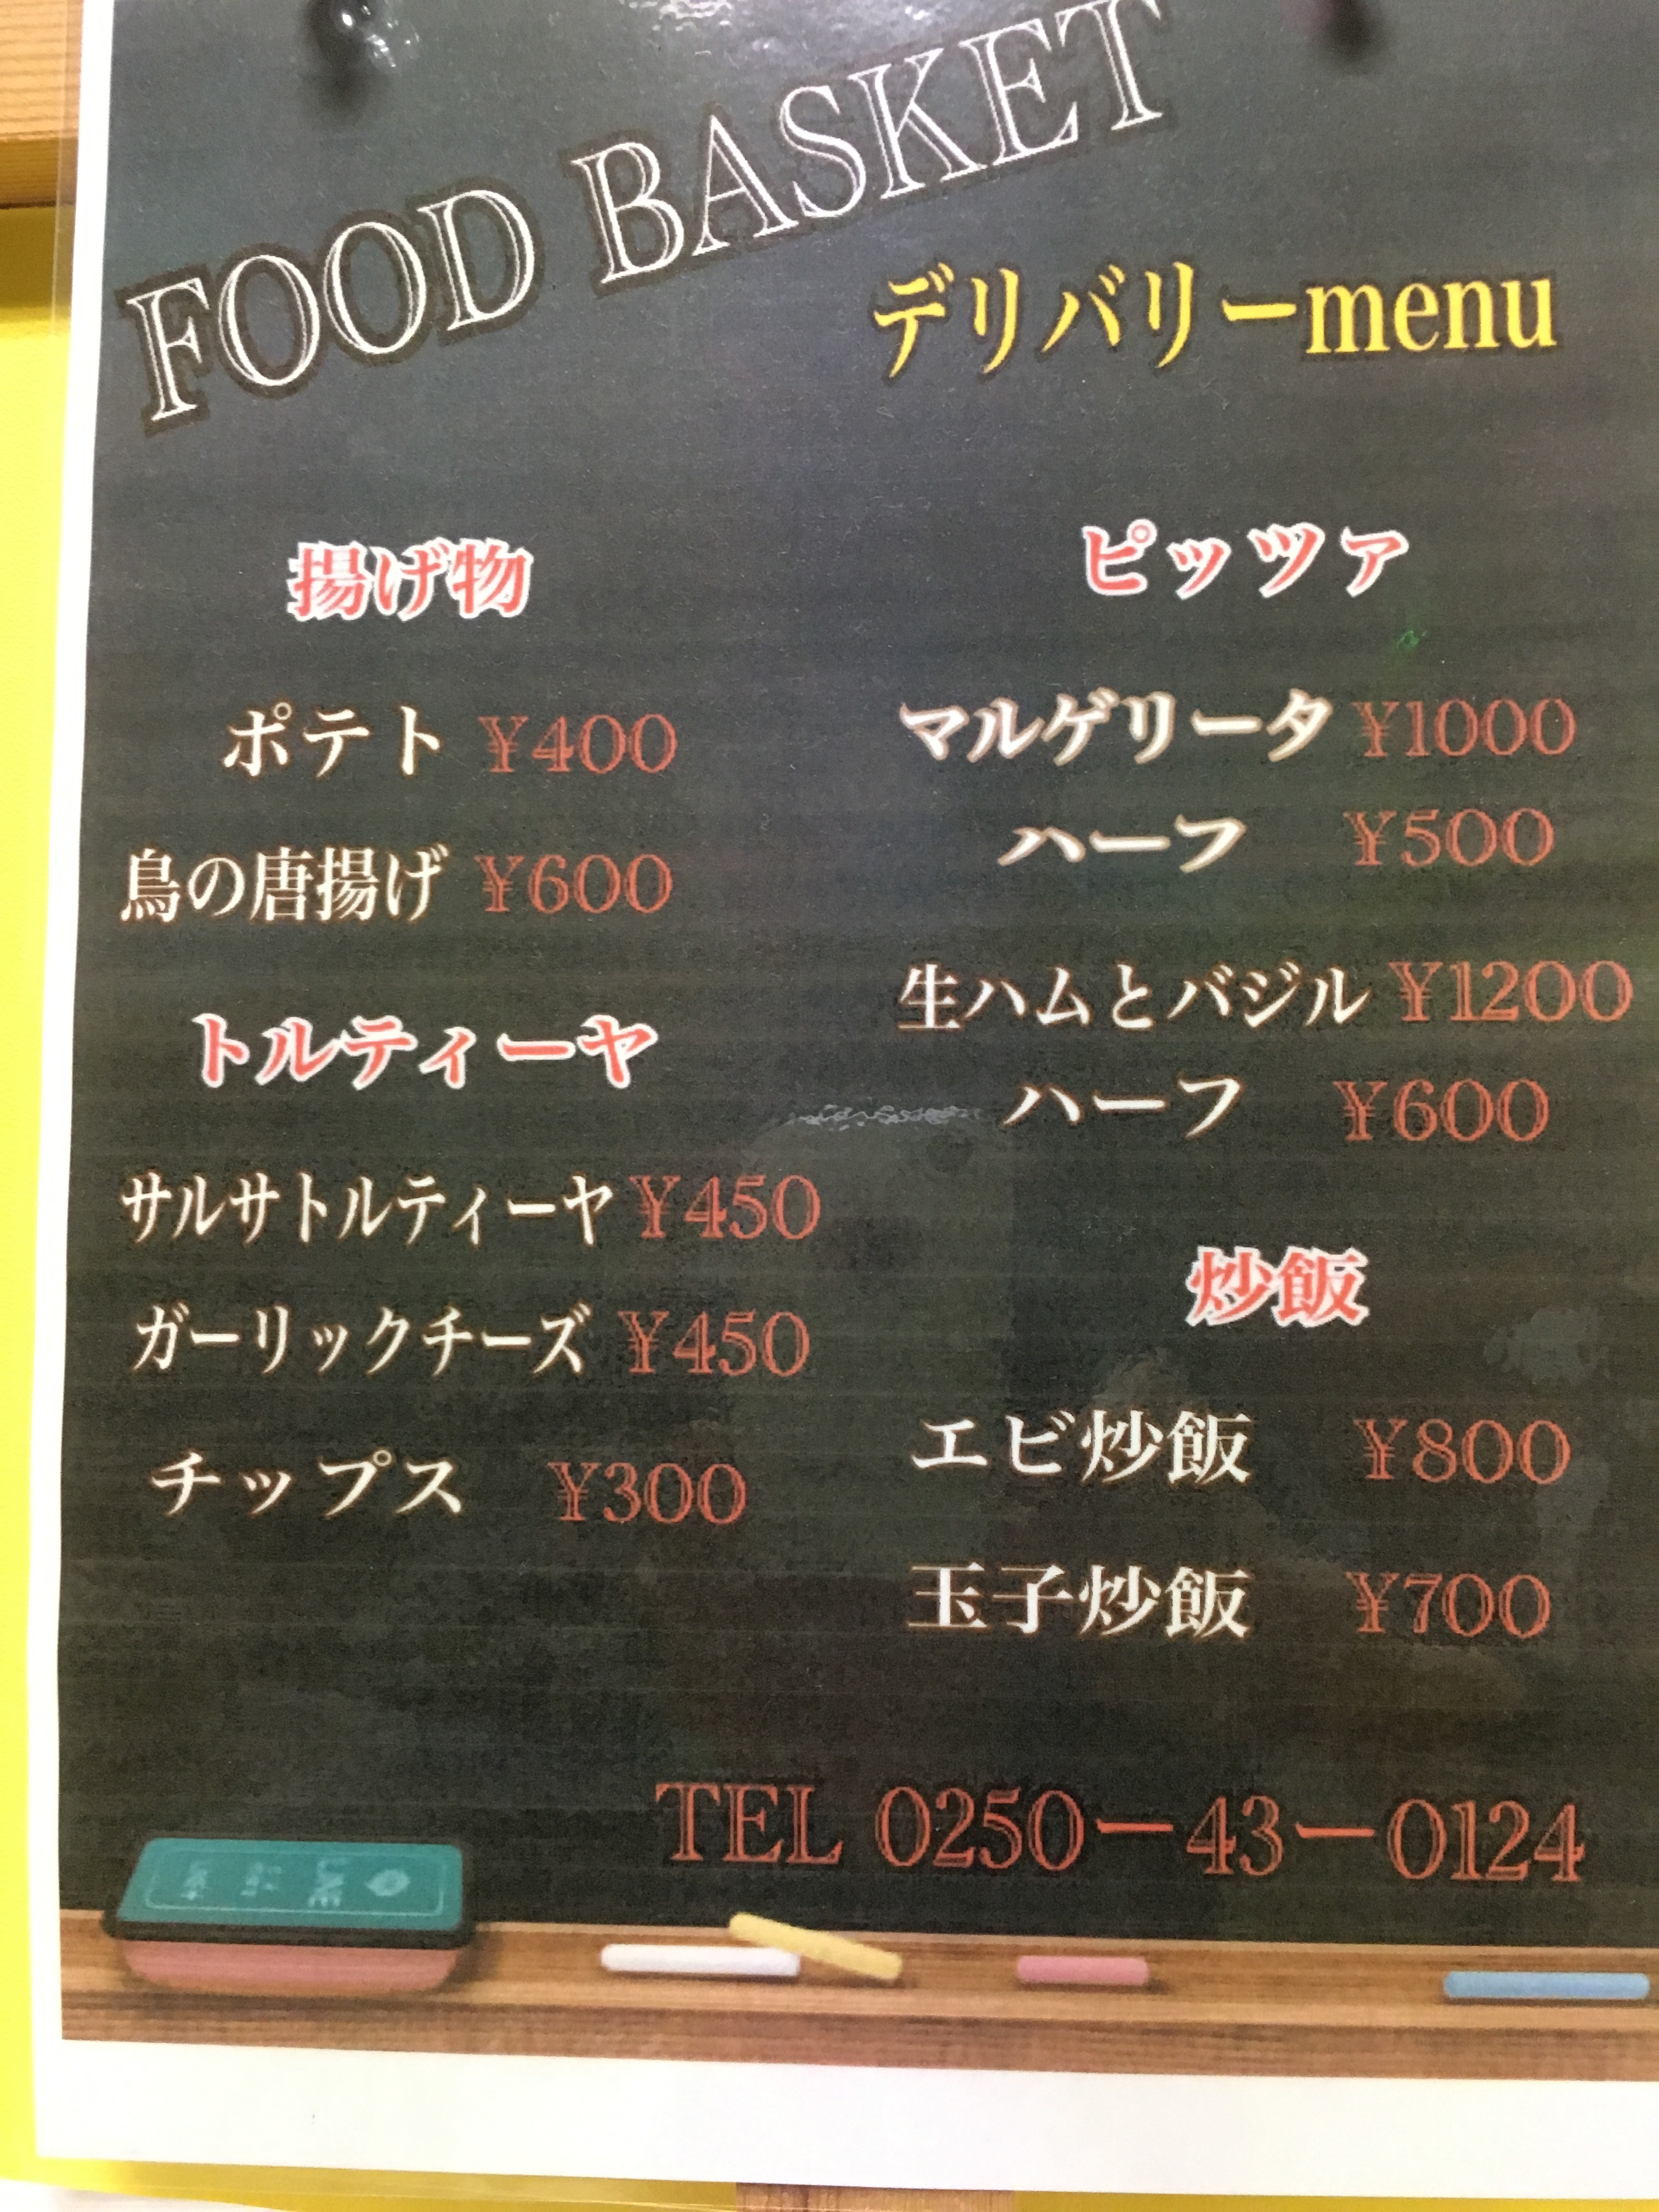 FOOD BASKET
デリバリーmenu
揚げ物
ポテト ¥400
鳥の唐揚げ ¥600
トルティーヤ
サルサトルティーヤ ¥450
ガーリックチーズ ¥450
チップス ¥300
ピッツァ
マルゲリータ ¥1000
ハーフ ¥500
生ハムとバジル ¥1200
ハーフ ¥600
炒飯
エビ炒飯 ¥800
玉子炒飯 ¥700
TEL 0250ー43ー0124